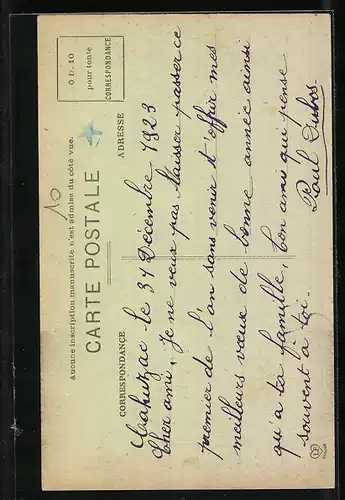 Aucune inscription manuscrite n'est admise du côté vue.
CARTE POSTALE
0 fr. 10
pour toute
CORRESPONDANCE
CORRESPONDANCE
ADRESSE
10
le 31 Décembre 1923
Cher ami, Je ne veux pas laisser passer ce
premier de l'an sans venir t'offrir mes
meilleurs vœux de bonne année ainsi
qu'a ta famille, ton ami qui pense
souvent à toi.
Paul Dubos